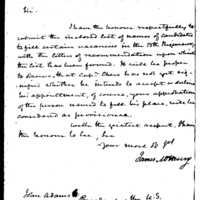 Sir.
I have the honour respectfully to
submit the inclosed list of names of candidates
to fill certain vacancies in the 15th Regiment,
with the letters of recommendation upon which
the list has been formed. It will be proper
to observe, that Capt. has not yet sig-
nified whether he intends to accept or decline
his appointment, of course, your approbation
of the person named to fill his place, will be
considered as provisional.
with the greatest respect, I have
the honour to be, Sir
your most
James McHenry
John Adams
President of the U.S.